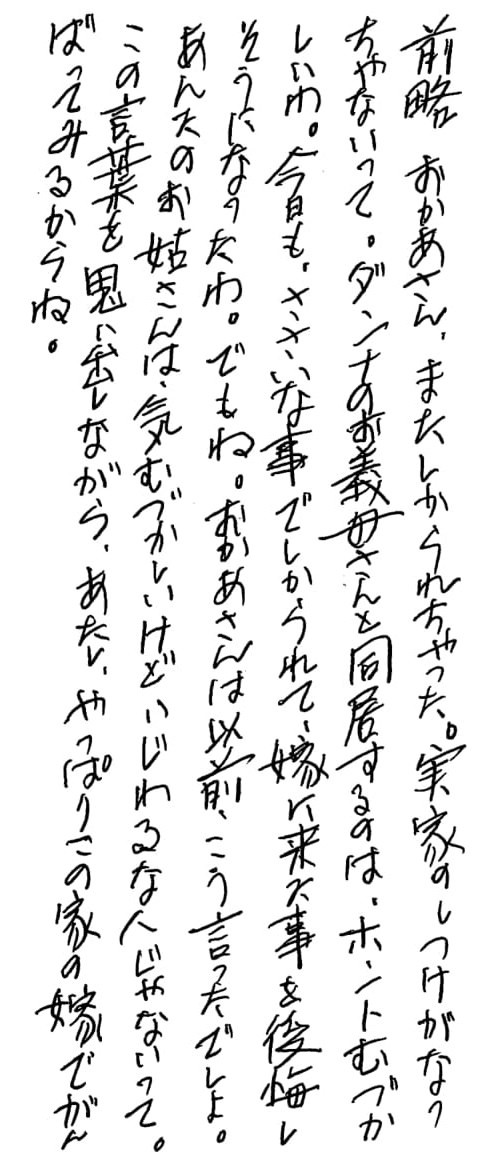 前略　おかあさん、またしかられちゃった。実家のしつけがなっ
ちゃないって。ダンナのお義母さんと同居するのは、ホントむづか
しいわ。今日も、ささいな事でしかられて、嫁に来た事を後悔し
そうになったわ。でもね。おかあさんは以前、こう言ったでしょ。
あんたのお姑さんは、気むづかしいけどいじわるな人じゃないって。
この言葉を思い出しながら、あたし、やっぱりこの家の嫁でがん
ばってみるからね。